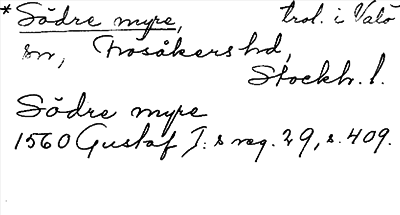 *Södre myre, trol. i Valö
sn, Frösåkers hd,
Stockh. l.
Södre myre
1560 Gustaf I:s reg. 29, s. 409.